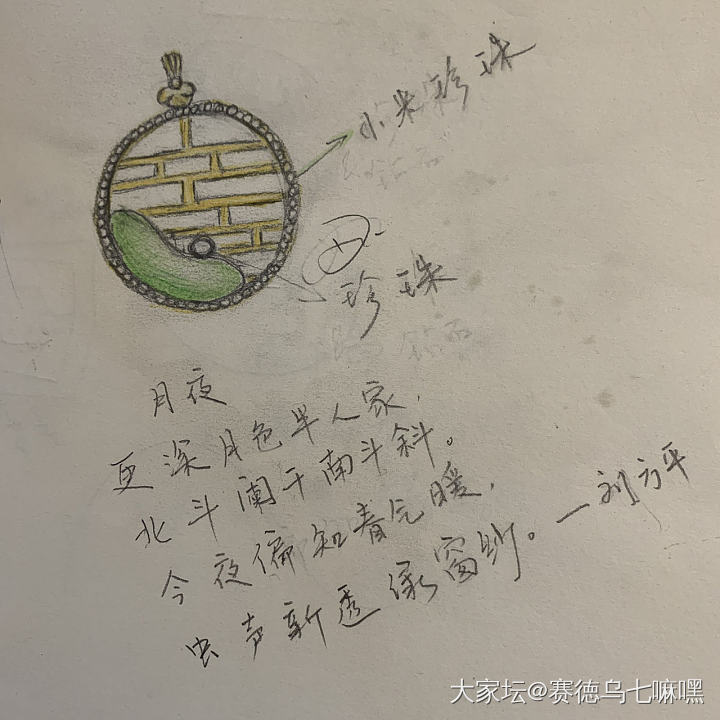 小米珍珠
珍珠
月夜
更深月色半人家，
北斗阑干南斗斜。
今夜偏知春气暖，
虫声新透绿窗纱。一刘方平
大家坛@赛德乌七嘛嘿